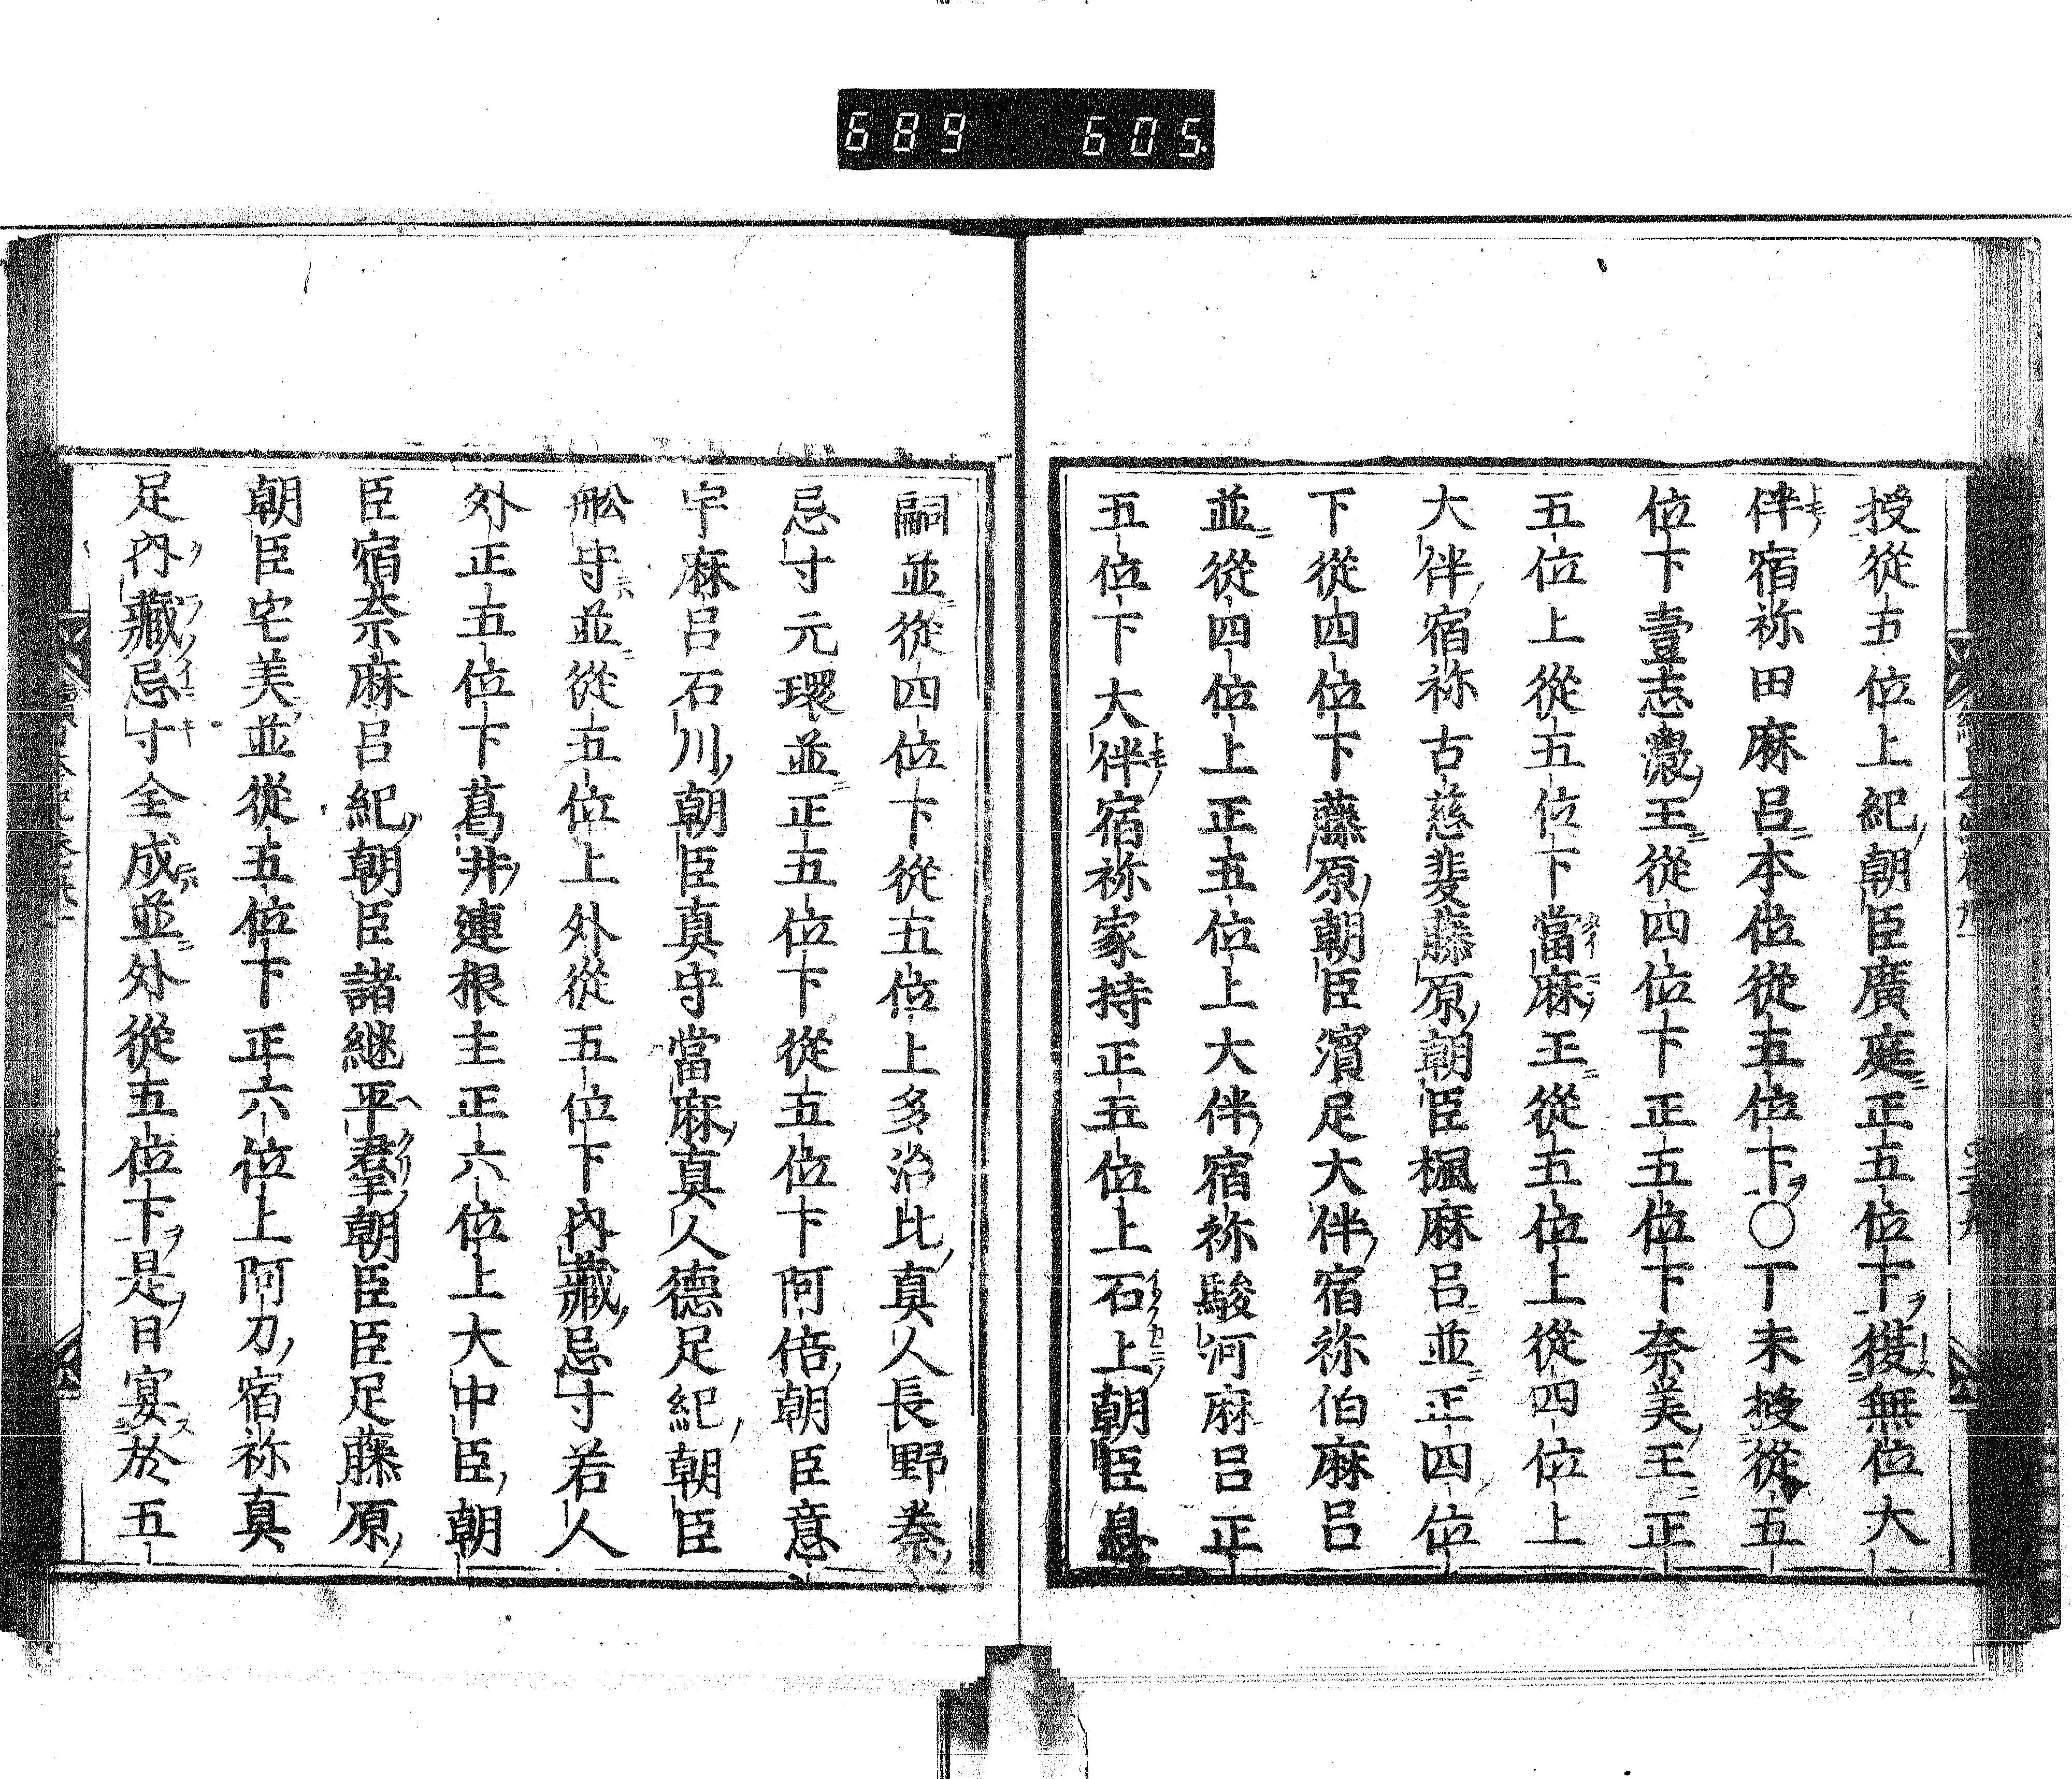 689 605.
授從五位上紀朝臣廣庭正五位下復無位大
伴宿祢田麻呂本位從五位下○丁未授從五
位下壹志濃王從四位下正五位下奈美王正
五位上從五位下當麻王從五位上從四位上
大伴宿祢古慈斐藤原朝臣楓麻呂並正四位
下從四位下藤原朝臣濱足大伴宿祢伯麻呂
並從四位上正五位上大伴宿祢駿河麻呂正
五位下大伴宿祢家持正五位上石上朝臣息
嗣並從四位下從五位上多治比真人長野秦
忌寸元環並正五位下從五位下阿倍朝臣意
宇麻呂石川朝臣真守當麻真人德足紀朝臣
舩守並從五位上外從五位下內藏忌寸若人
外正五位下葛井連根主正六位上大中臣朝
臣宿奈麻呂紀朝臣諸継平羣朝臣臣足藤原
朝臣宅美並從五位下正六位上阿刀宿祢真
足內藏忌寸全成並外從五位下是日宴於五